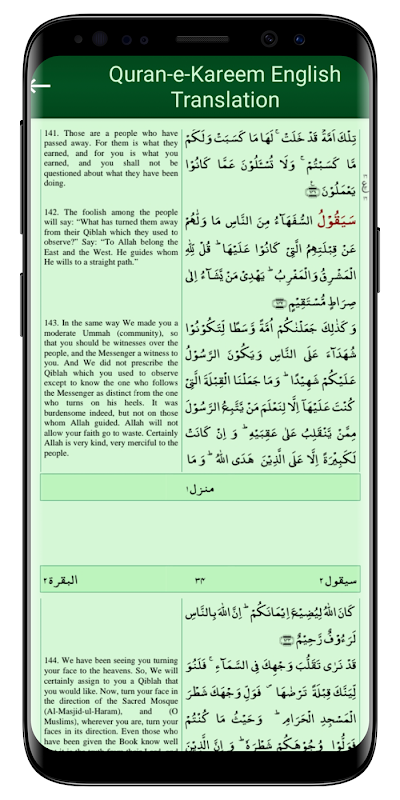 Quran-e-Kareem English
Translation
141. Those are a people who have
passed away. For them is what they
earned, and for you is what you
earned, and you shall not be
questioned about what they have been
doing.
تِلْكَ اُمَّةٌ قَدْ خَلَتْ ۚ لَهَا مَا كَسَبَتْ وَلَكُمْ
مَّا كَسَبْتُمْ ۚ وَلَا تُسْـَٔلُوْنَ عَمَّا كَانُوْا
يَعْمَلُوْنَ
142. The foolish among the people
will say: “What has turned them away
from their Qiblah which they used to
observe?” Say: “To Allah belong the
East and the West. He guides whom
He wills to a straight path.”
سَيَقُوْلُ السُّفَهَآءُ مِنَ النَّاسِ مَا وَلّٰىهُمْ
عَنْ قِبْلَتِهِمُ الَّتِيْ كَانُوْا عَلَيْهَا ؕ قُلْ لِّلّٰهِ
الْمَشْرِقُ وَالْمَغْرِبُ ؕ يَهْدِيْ مَنْ يَّشَآءُ اِلٰى
صِرَاطٍ مُّسْتَقِيْمٍ
143. In the same way We made you a
moderate Ummah (community), so
that you should be witnesses over the
people, and the Messenger a witness to
you. And We did not prescribe the
Qiblah which you used to observe
except to know the one who follows
the Messenger as distinct from the one
who turns on his heels. It was
burdensome indeed, but not on those
whom Allah guided. Allah will not
allow your faith go to waste. Certainly
Allah is very kind, very merciful to the
people.
وَكَذٰلِكَ جَعَلْنٰكُمْ اُمَّةً وَّسَطًا لِّتَكُوْنُوْا
شُهَدَآءَ عَلَى النَّاسِ وَيَكُوْنَ الرَّسُوْلُ
عَلَيْكُمْ شَهِيْدًا ؕ وَمَا جَعَلْنَا الْقِبْلَةَ الَّتِيْ
كُنْتَ عَلَيْهَآ اِلَّا لِنَعْلَمَ مَنْ يَّتَّبِعُ الرَّسُوْلَ
مِمَّنْ يَّنْقَلِبُ عَلٰى عَقِبَيْهِ ؕ وَاِنْ كَانَتْ
لَكَبِيْرَةً اِلَّا عَلَى الَّذِيْنَ هَدَى اللّٰهُ ؕ وَمَا
منزل ١
سيقول ٢
٣٤
البقرة ٢
كَانَ اللّٰهُ لِيُضِيْعَ اِيْمَانَكُمْ ؕ اِنَّ اللّٰهَ بِالنَّاسِ
لَرَءُوْفٌ رَّحِيْمٌ
144. We have been seeing you turning
your face to the heavens. So, We will
certainly assign to you a Qiblah that
you would like. Now, turn your face in
the direction of the Sacred Mosque
(Al-Masjid-ul-Haram), and (O
Muslims), wherever you are, turn your
faces in its direction. Even those who
have been given the Book know well
قَدْ نَرٰى تَقَلُّبَ وَجْهِكَ فِي السَّمَآءِ ۚ فَلَنُوَ
لِّيَنَّكَ قِبْلَةً تَرْضٰىهَا ۪ فَوَلِّ وَجْهَكَ شَطْرَ
الْمَسْجِدِ الْحَرَامِ ؕ وَحَيْثُ مَا كُنْتُمْ
فَوَلُّوْا وُجُوْهَكُمْ شَطْرَهٗ ؕ وَاِنَّ الَّذِيْنَ